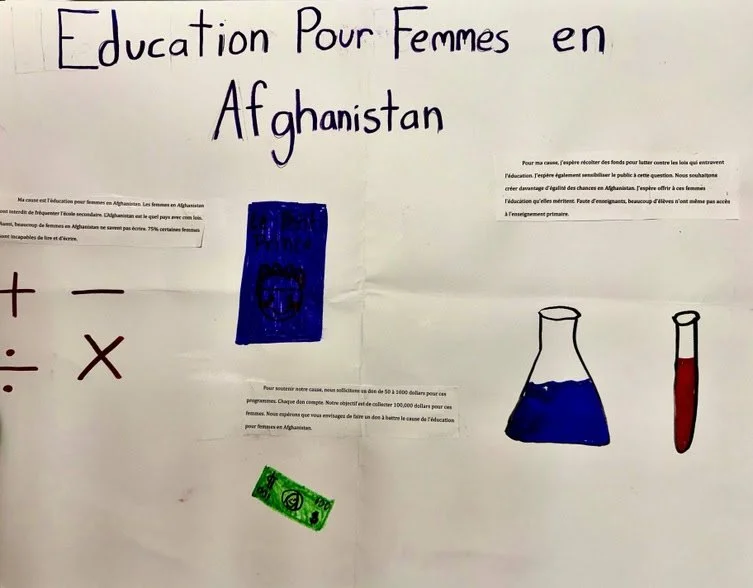 Education Pour Femmes en
Afghanistan
Ma cause est l'éducation pour femmes en Afghanistan. Les femmes en Afghanistan
ont interdit de fréquenter l'école secondaire. L'Afghanistan est le quel pays avec com lois.
Aussi, beaucoup de femmes en Afghanistan ne savent pas écrire. 75% certaines femmes
sont incapables de lire et d'écrire.
Pour ma cause, j'espère récolter des fonds pour lutter contre les lois qui entravent
l'éducation. J'espère également sensibiliser le public à cette question. Nous souhaitons
créer davantage d'égalité des chances en Afghanistan. J'espère offrir à ces femmes
l'éducation qu'elles méritent. Faute d'enseignants, beaucoup d'élèves n'ont même pas accès
à l'enseignement primaire.
Le Petit
Prince
+ −
÷ ×
Pour soutenir notre cause, nous sollicitons un don de 50 à 1000 dollars pour ces
programmes. Chaque don compte. Notre objectif est de collecter 100,000 dollars pour ces
femmes. Nous espérons que vous envisagez de faire un don à battre le cause de l'éducation
pour femmes en Afghanistan.
$ 100
100 $